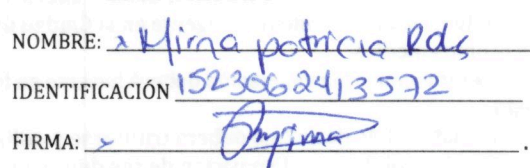 NOMBRE: x Mirna patricia Rds
IDENTIFICACIÓN 1523062413572
FIRMA: x